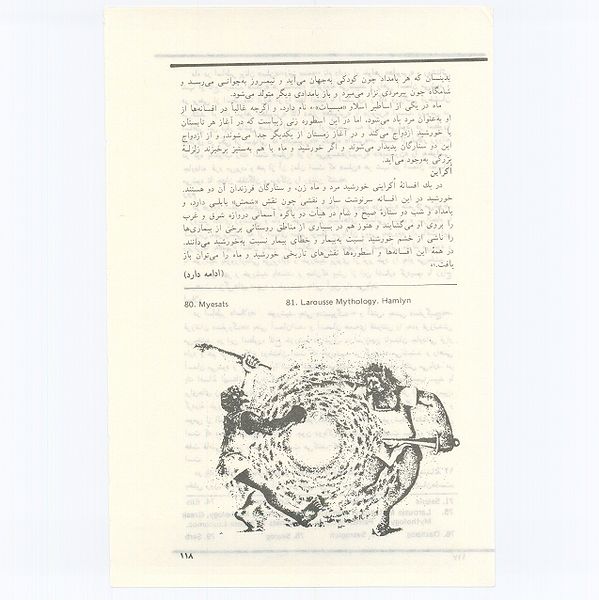 بدینسان که هر بامداد چون کودکی به‌جهان می‌آید و نیمروز به‌جوانی می‌رسد و
شامگاه چون پیرمردی نزار می‌میرد و باز بامدادی دیگر متولد می‌شود.
ماه در یکی از اساطیر اسلاو «میسیات»۸۰ نام دارد، و اگرچه غالباً در افسانه‌ها از
او به‌عنوان مرد یاد می‌شود، اما در این اسطوره زنی زیباست که در آغاز هر تابستان
با خورشید ازدواج می‌کند و در آغاز زمستان از یکدیگر جدا می‌شوند، و از ازدواج
این دو ستارگان پدیدار می‌شوند و اگر خورشید و ماه با هم به‌ستیز برخیزند زلزلهٔ
بزرگی به‌وجود می‌آید.
اُکراین
در یك افسانهٔ اُکراینی خورشید مرد و ماه زن، و ستارگان فرزندان آن دو هستند.
خورشید در این افسانه سرنوشت ساز و نقشی چون نقش «شمش» بابلی دارد، و
بامداد و شب دو ستارهٔ صبح و شام در هیأت دو باکره آسمانی دروازه شرق و غرب
را بروی او می‌گشایند و هنوز هم در بسیاری از مناطق روستائی برخی از بیماری‌ها
را ناشی از خشم خورشید نسبت به‌بیمار و خطای بیمار نسبت به‌خورشید می‌دانند.
در همهٔ این افسانه‌ها و اسطوره‌ها نقش‌های تاریخی خورشید و ماه را می‌توان باز
یافت.۸۱
(ادامه دارد)
80. Myesats 81. Larousse Mythology. Hamlyn
۱۱۸